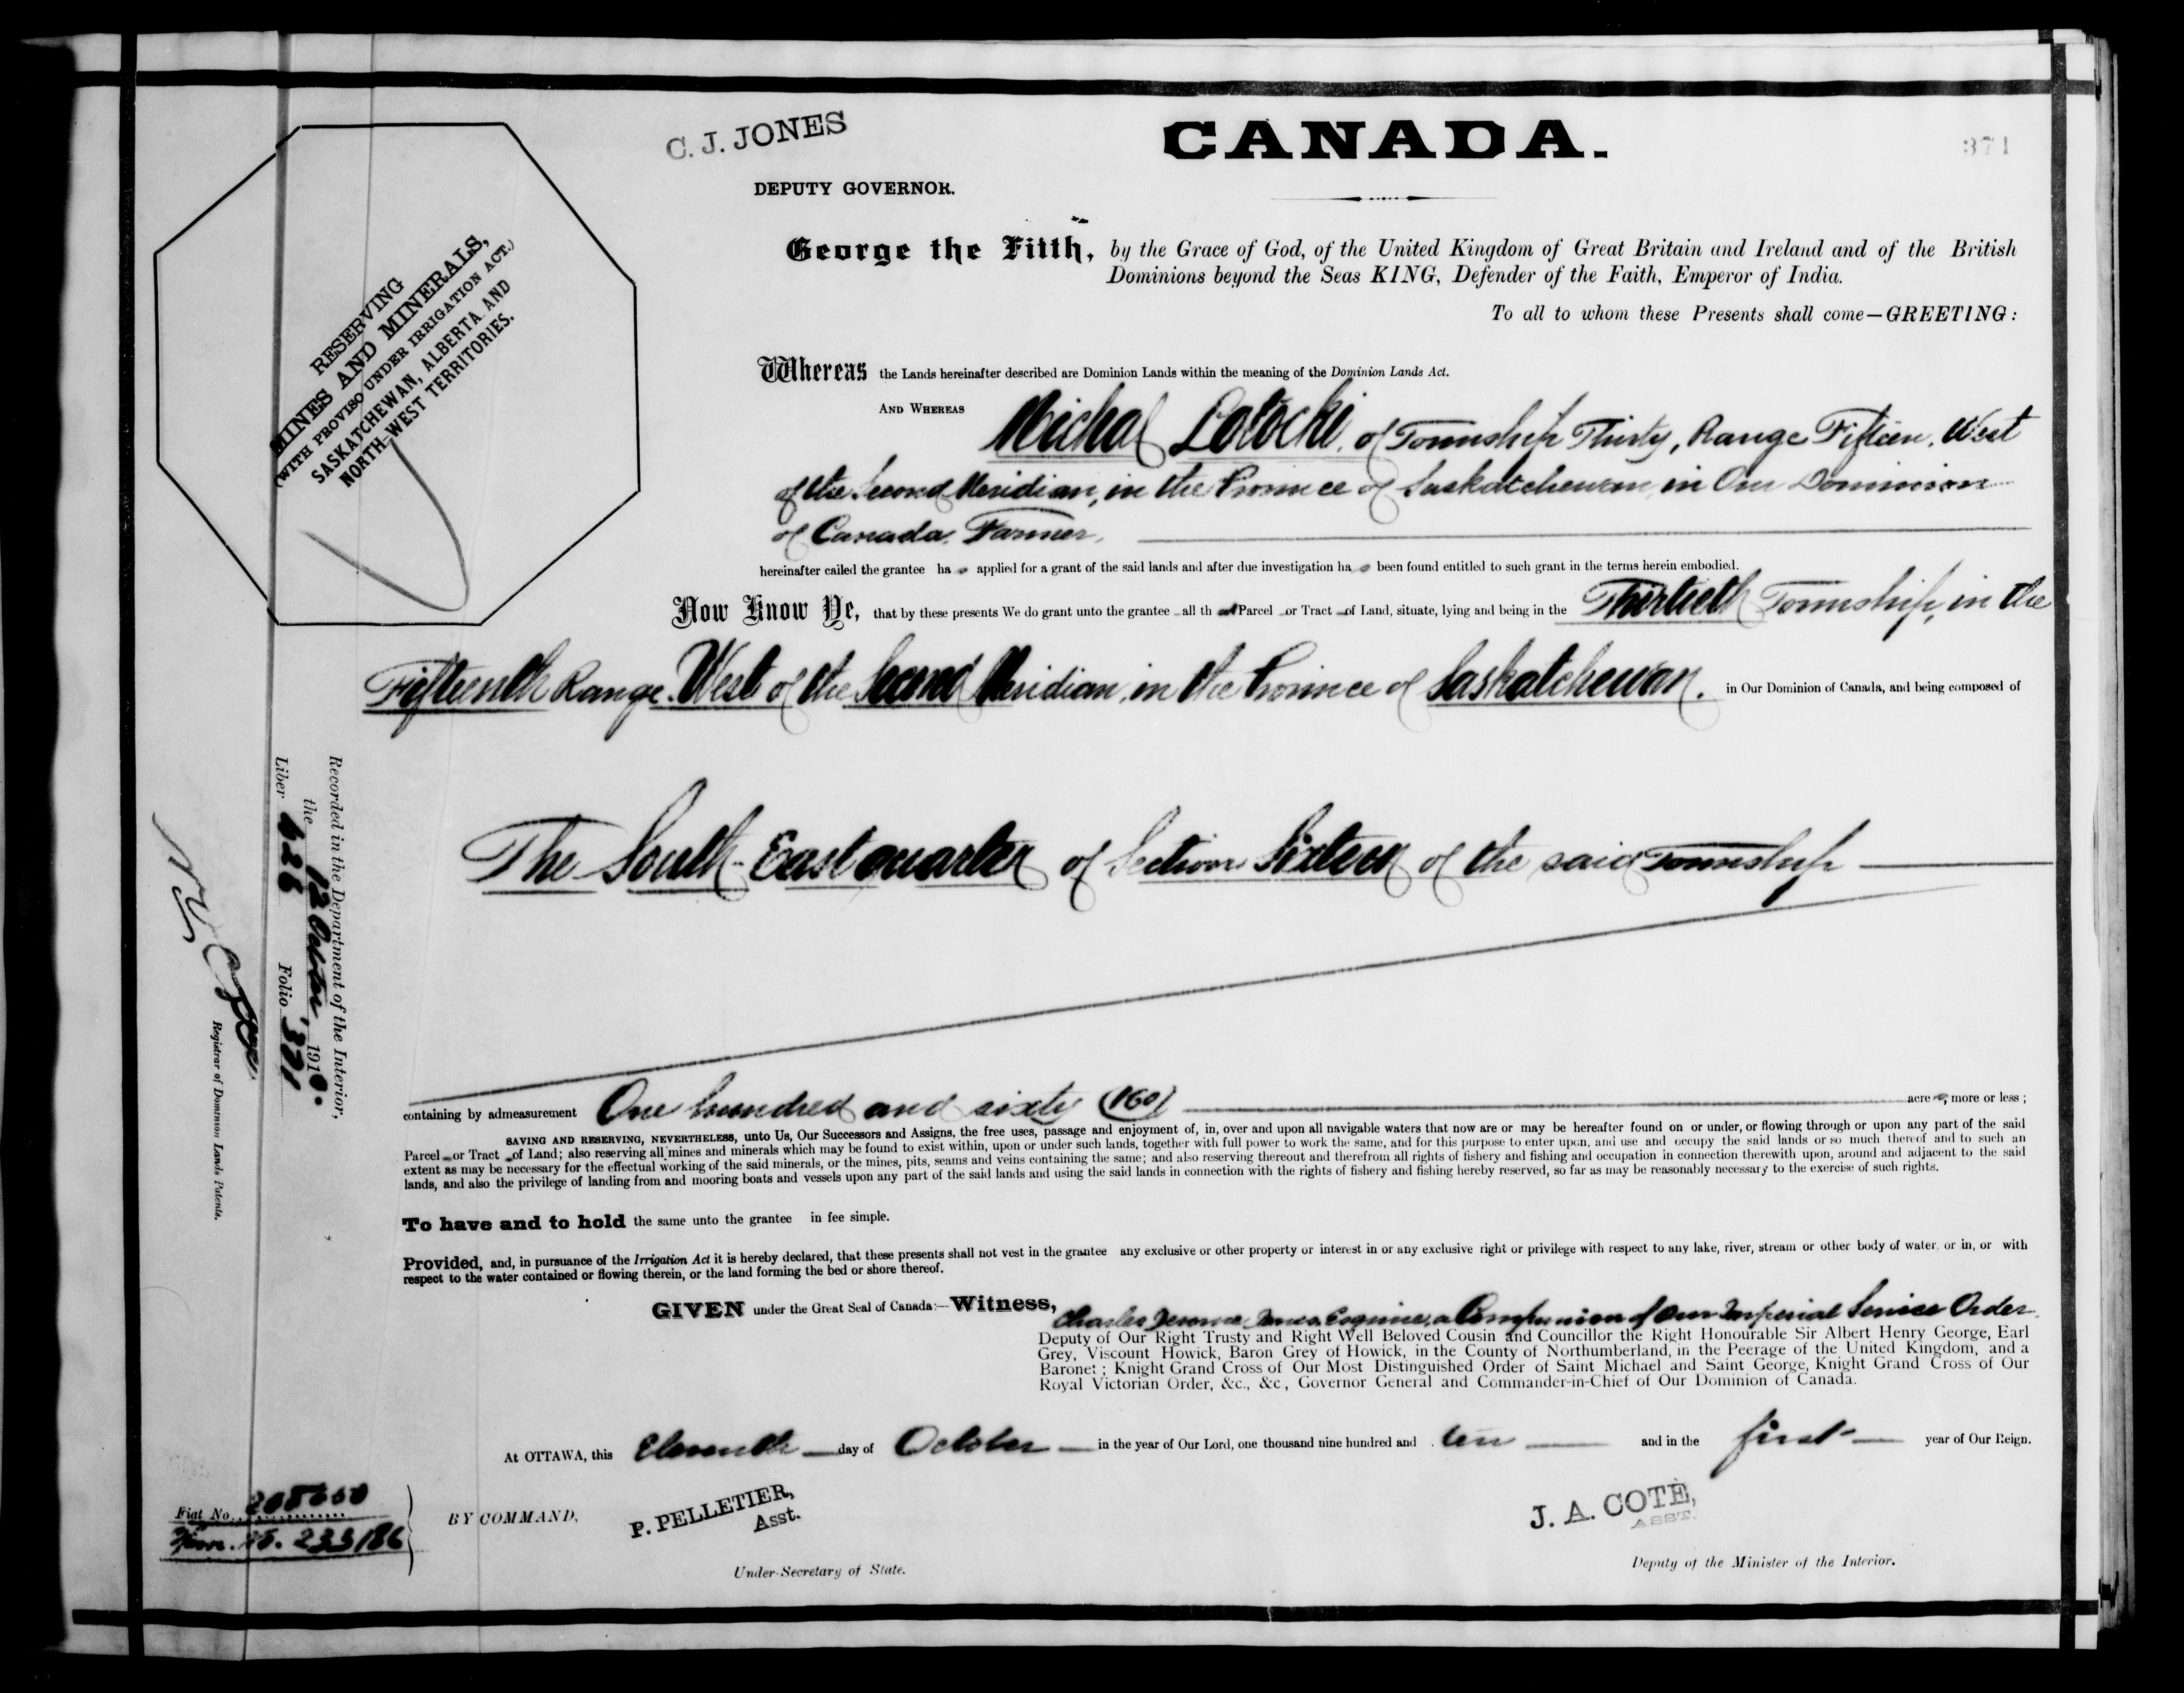 C. J. JONES
DEPUTY GOVERNOR.
CANADA.
371
George the Fifth, by the Grace of God, of the United Kingdom of Great Britain and Ireland and of the British
Dominions beyond the Seas KING, Defender of the Faith, Emperor of India.
To all to whom these Presents shall come—GREETING:
RESERVING
MINES AND MINERALS,
(WITH PROVISO UNDER IRRIGATION ACT.)
SASKATCHEWAN, ALBERTA AND
NORTH-WEST TERRITORIES.
Whereas the Lands hereinafter described are Dominion Lands within the meaning of the Dominion Lands Act.
AND WHEREAS Michal Lotocki, of Township Thirty, Range Fifteen, West
of the Second Meridian, in the Province of Saskatchewan, in Our Dominion
of Canada, Farmer,
hereinafter called the grantee ha s applied for a grant of the said lands and after due investigation ha s been found entitled to such grant in the terms herein embodied.
Now Know Ye, that by these presents We do grant unto the grantee all th at Parcel or Tract of Land, situate, lying and being in the Thirtieth Township, in the
Fifteenth Range, West of the Second Meridian, in the Province of Saskatchewan. in Our Dominion of Canada, and being composed of
The South-East quarter of Section Sixteen of the said Township
Recorded in the Department of the Interior,
the 12 October, 1910.
Liber 626 Folio 371
Registrar of Dominion Lands Patents.
containing by admeasurement One hundred and sixty (160) acre s, more or less ;
SAVING AND RESERVING, NEVERTHELESS, unto Us, Our Successors and Assigns, the free uses, passage and enjoyment of, in, over and upon all navigable waters that now are or may be hereafter found on or under, or flowing through or upon any part of the said
Parcel or Tract of Land; also reserving all mines and minerals which may be found to exist within, upon or under such lands, together with full power to work the same, and for this purpose to enter upon, and use and occupy the said lands or so much thereof and to such an
extent as may be necessary for the effectual working of the said minerals, or the mines, pits, seams and veins containing the same; and also reserving thereout and therefrom all rights of fishery and fishing and occupation in connection therewith upon, around and adjacent to the said
lands, and also the privilege of landing from and mooring boats and vessels upon any part of the said lands and using the said lands in connection with the rights of fishery and fishing hereby reserved, so far as may be reasonably necessary to the exercise of such rights.
To have and to hold the same unto the grantee in fee simple.
Provided, and, in pursuance of the Irrigation Act it is hereby declared, that these presents shall not vest in the grantee any exclusive or other property or interest in or any exclusive right or privilege with respect to any lake, river, stream or other body of water, or in, or with
respect to the water contained or flowing therein, or the land forming the bed or shore thereof.
GIVEN under the Great Seal of Canada:—Witness, Charles Jerome Jones, Esquire, a Companion of Our Imperial Service Order,
Deputy of Our Right Trusty and Right Well Beloved Cousin and Councillor the Right Honourable Sir Albert Henry George, Earl
Grey, Viscount Howick, Baron Grey of Howick, in the County of Northumberland, in the Peerage of the United Kingdom, and a
Baronet ; Knight Grand Cross of Our Most Distinguished Order of Saint Michael and Saint George, Knight Grand Cross of Our
Royal Victorian Order, &c., &c., Governor General and Commander-in-Chief of Our Dominion of Canada.
At OTTAWA, this Eleventh day of October in the year of Our Lord, one thousand nine hundred and ten and in the first year of Our Reign.
Fiat No.
No. 233186
BY COMMAND,
P. PELLETIER,
Asst.
Under-Secretary of State.
J. A. COTÉ,
ASST.
Deputy of the Minister of the Interior.